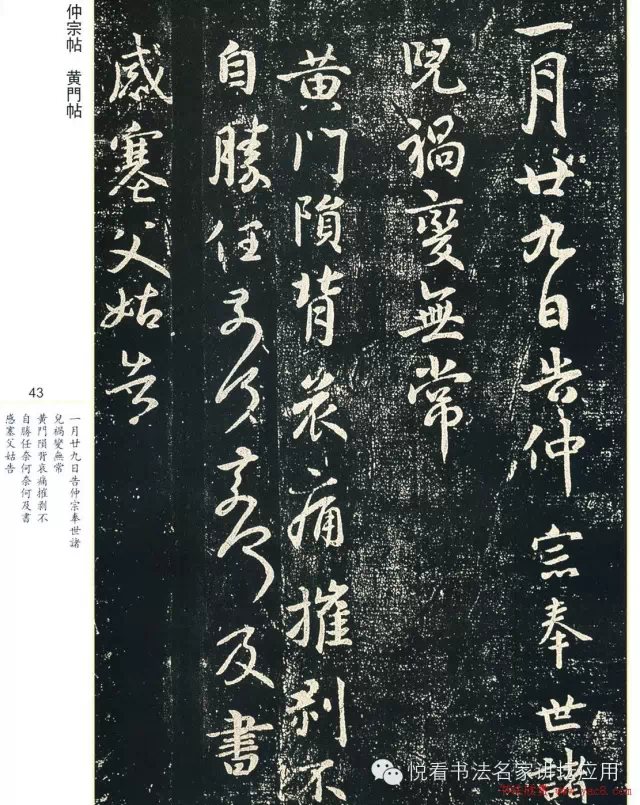 一月廿九日告仲宗奉世諸
兒禍變無常
黄門隕背哀痛摧剥不
自勝任奈何奈何及書
感塞父姑告
仲宗帖 黄門帖
43
一月廿九日告仲宗奉世諸
兒禍變無常
黄門隕背哀痛摧剥不
自勝任奈何奈何及書
感塞父姑告
悦看书法名家讲坛应用